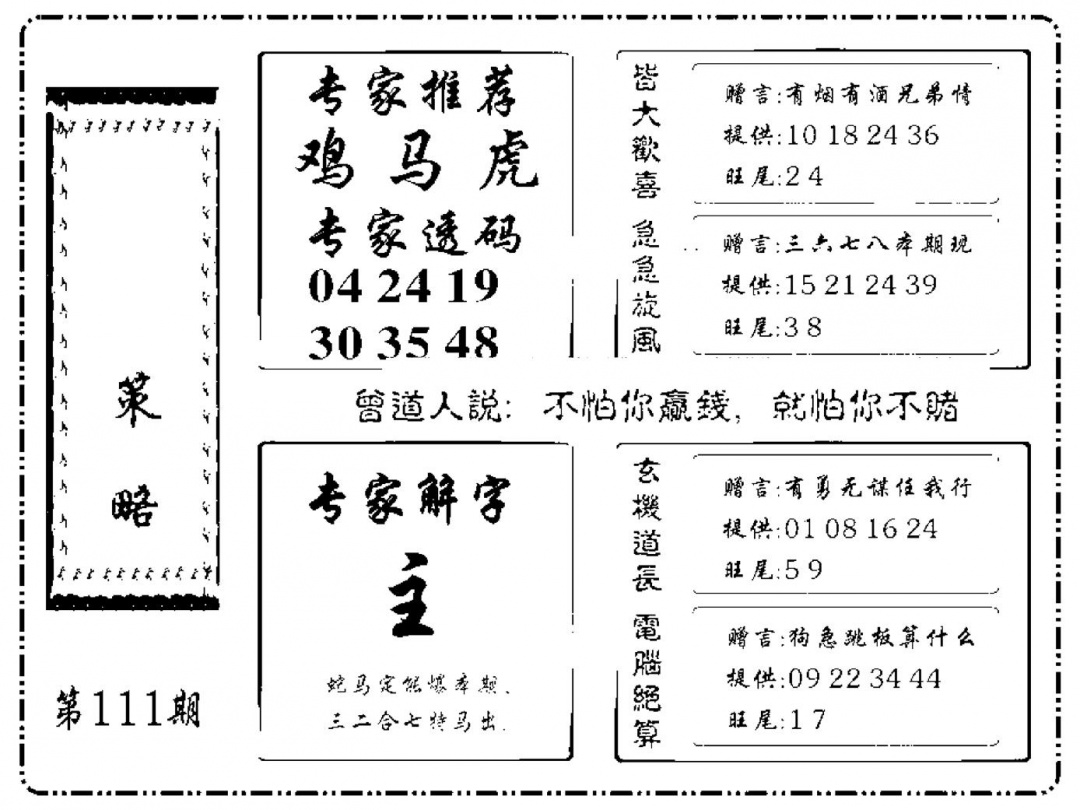 策略
第111期
专家推荐
鸡马虎
专家透码
04 24 19
30 35 48
皆大歡喜
赠言:有烟有酒兄弟情
提供:10 18 24 36
旺尾:2 4
急急旋風
赠言:三六七八本期现
提供:15 21 24 39
旺尾:3 8
曾道人説: 不怕你赢錢, 就怕你不賭
专家解字
主
蛇马定能爆本期.
三二合七特马出.
玄機道長
赠言:有勇无谋任我行
提供:01 08 16 24
旺尾:5 9
電腦絕算
赠言:狗急跳板算什么
提供:09 22 34 44
旺尾:1 7